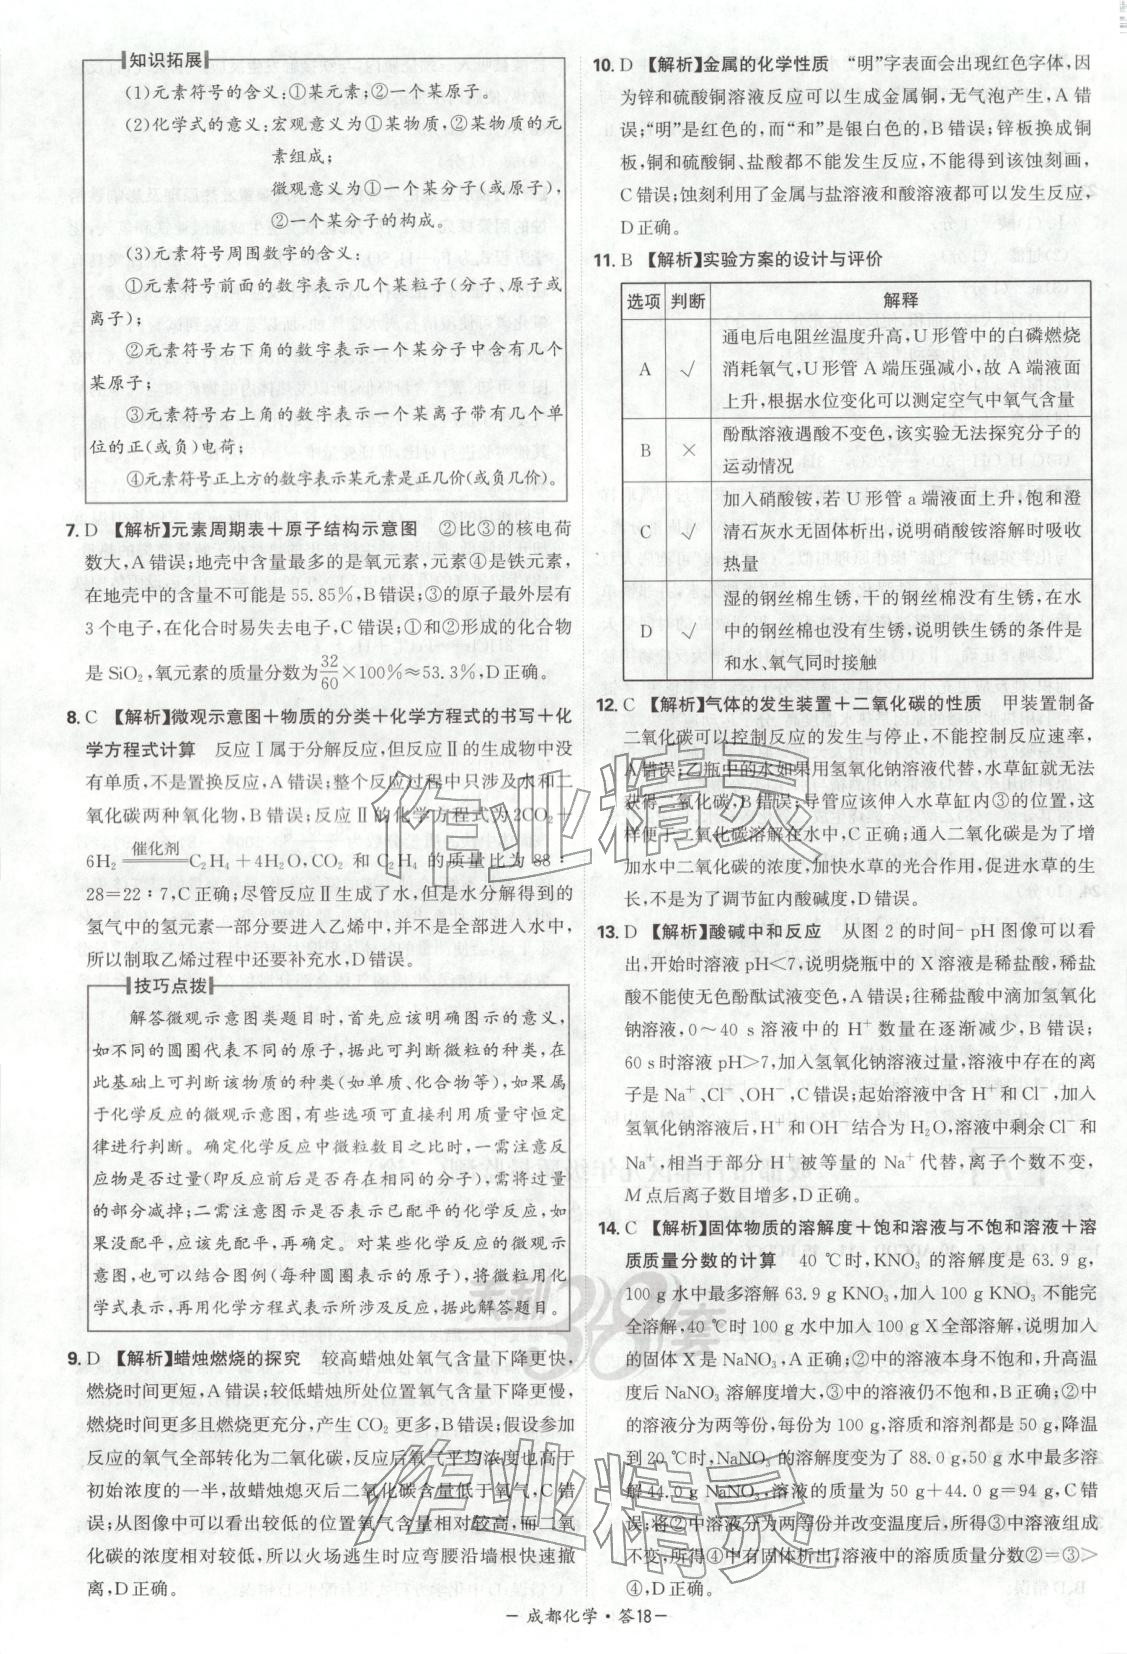 知识拓展
(1)元素符号的含义:①某元素;②一个某原子。
(2)化学式的意义:宏观意义为①某物质,②某物质的元
素组成;
微观意义为①一个某分子(或原子),
②一个某分子的构成。
(3)元素符号周围数字的含义:
①元素符号前面的数字表示几个某粒子(分子、原子或
离子);
②元素符号右下角的数字表示一个某分子中含有几个
某原子;
③元素符号右上角的数字表示一个某离子带有几个单
位的正(或负)电荷;
④元素符号正上方的数字表示某元素是正几价(或负几价)。
7. D 【解析】元素周期表+原子结构示意图 ②比③的核电荷
数大,A错误;地壳中含量最多的是氧元素,元素④是铁元素,
在地壳中的含量不可能是55.85%,B错误;③的原子最外层有
3个电子,在化合时易失去电子,C错误;①和②形成的化合物
是SiO₂,氧元素的质量分数为32/60×100%≈53.3%,D正确。
8. C 【解析】微观示意图+物质的分类+化学方程式的书写+化
学方程式计算 反应Ⅰ属于分解反应,但反应Ⅱ的生成物中没
有单质,不是置换反应,A错误;整个反应过程中只涉及水和二
氧化碳两种氧化物,B错误;反应Ⅱ的化学方程式为2CO₂+
6H₂ 催化剂═ C₂H₄+4H₂O,CO₂ 和 C₂H₄ 的质量比为 88∶
28=22∶7,C正确;尽管反应Ⅱ生成了水,但是水分解得到的
氢气中的氢元素一部分要进入乙烯中,并不是全部进入水中,
所以制取乙烯过程中还要补充水,D错误。
技巧点拨
解答微观示意图类题目时,首先应该明确图示的意义,
如不同的圆圈代表不同的原子,据此可判断微粒的种类,在
此基础上可判断该物质的种类(如单质、化合物等),如果属
于化学反应的微观示意图,有些选项可直接利用质量守恒定
律进行判断。确定化学反应中微粒数目之比时,一需注意反
应物是否过量(即反应前后是否存在相同的微粒),需将过量
的部分减掉;二需注意图示是否表示已配平的化学反应,如
果没配平,应该先配平,再确定。对某些化学反应的微观示
意图,也可以结合图例(每种圆圈表示的原子),将微粒用化
学式表示,再用化学方程式表示所涉及反应,据此解答题目。
9. D 【解析】蜡烛燃烧的探究 较高蜡烛处氧气含量下降更快,
燃烧时间更短,A错误;较低蜡烛所处位置氧气含量下降更慢,
燃烧时间更多且燃烧更充分,产生CO₂更多,B错误;假设参加
反应的氧气全部转化为二氧化碳,反应后氧气平均浓度也高于
初始浓度的一半,故蜡烛熄灭后二氧化碳含量低于氧气,C错
误;从图像中可以看出较低的位置氧气含量相对较高,而二氧
化碳的浓度相对较低,所以火场逃生时应弯腰沿墙根快速撤
离,D正确。
10. D 【解析】金属的化学性质 “明”字表面会出现红色字体,因
为锌和硫酸铜溶液反应可以生成金属铜,无气泡产生,A错
误;“明”是红色的,而“和”是银白色的,B错误;锌板换成铜
板,铜和硫酸铜、盐酸都不能发生反应,不能得到该蚀刻画,
C错误;蚀刻利用了金属与盐溶液和酸溶液都可以发生反应,
D正确。
11. B 【解析】实验方案的设计与评价
选项 判断 解释
A √ 通电后电阻丝温度升高,U形管中的白磷燃烧
消耗氧气,U形管A端压强减小,故A端液面
上升,根据水位变化可以测定空气中氧气含量
B × 酚酞溶液遇酸不变色,该实验无法探究分子的
运动情况
C √ 加入硝酸铵,若U形管a端液面上升,饱和澄
清石灰水无固体析出,说明硝酸铵溶解时吸收
热量
D √ 湿的钢丝棉生锈,干的钢丝棉没有生锈,在水
中的钢丝棉也没有生锈,说明铁生锈的条件是
和水、氧气同时接触
12. C 【解析】气体的发生装置+二氧化碳的性质 甲装置制备
二氧化碳可以控制反应的发生与停止,不能控制反应速率,
A错误;乙瓶中的水如果用氢氧化钠溶液代替,水草缸就无法
获得二氧化碳,B错误;导管应该伸入水草缸内③的位置,这
样便于二氧化碳溶解在水中,C正确;通入二氧化碳是为了增
加水中二氧化碳的浓度,加快水草的光合作用,促进水草的生
长,不是为了调节缸内酸碱度,D错误。
13. D 【解析】酸碱中和反应 从图2的时间-pH图像可以看
出,开始时溶液pH<7,说明烧瓶中的X溶液是稀盐酸,稀盐
酸不能使无色酚酞试液变色,A错误;往稀盐酸中滴加氢氧化
钠溶液,0～40 s溶液中的H⁺数量在逐渐减少,B错误;
60 s时溶液pH>7,加入氢氧化钠溶液过量,溶液中存在的离
子是Na⁺、Cl⁻、OH⁻,C错误;起始溶液中含H⁺和Cl⁻,加入
氢氧化钠溶液后,H⁺和OH⁻结合为H₂O,溶液中剩余Cl⁻和
Na⁺,相当于部分H⁺被等量的Na⁺代替,离子个数不变,
M点后离子数目增多,D正确。
14. C 【解析】固体物质的溶解度+饱和溶液与不饱和溶液+溶
质质量分数的计算 40 ℃时,KNO₃的溶解度是63.9 g,
100 g水中最多溶解63.9 g KNO₃,加入100 g KNO₃不能完
全溶解,40 ℃时100 g水中加入100 g X全部溶解,说明加入
的固体X是NaNO₃,A正确;②中的溶液本身不饱和,升高温
度后NaNO₃溶解度增大,③中的溶液仍不饱和,B正确;②中
的溶液分为两等份,每份为100 g,溶质和溶剂都是50 g,降温
到20 ℃时,NaNO₃的溶解度变为了88.0 g,50 g水中最多溶
解44.0 g NaNO₃,溶液的质量为50 g+44.0 g=94 g,C错
误;将②中溶液分为两等份并改变温度后,所得③中溶液组成
不变,所得④中有固体析出,溶液中的溶质质量分数②=③>
④,D正确。
作业精灵
天利38套
作业精灵
－成都化学·答18－